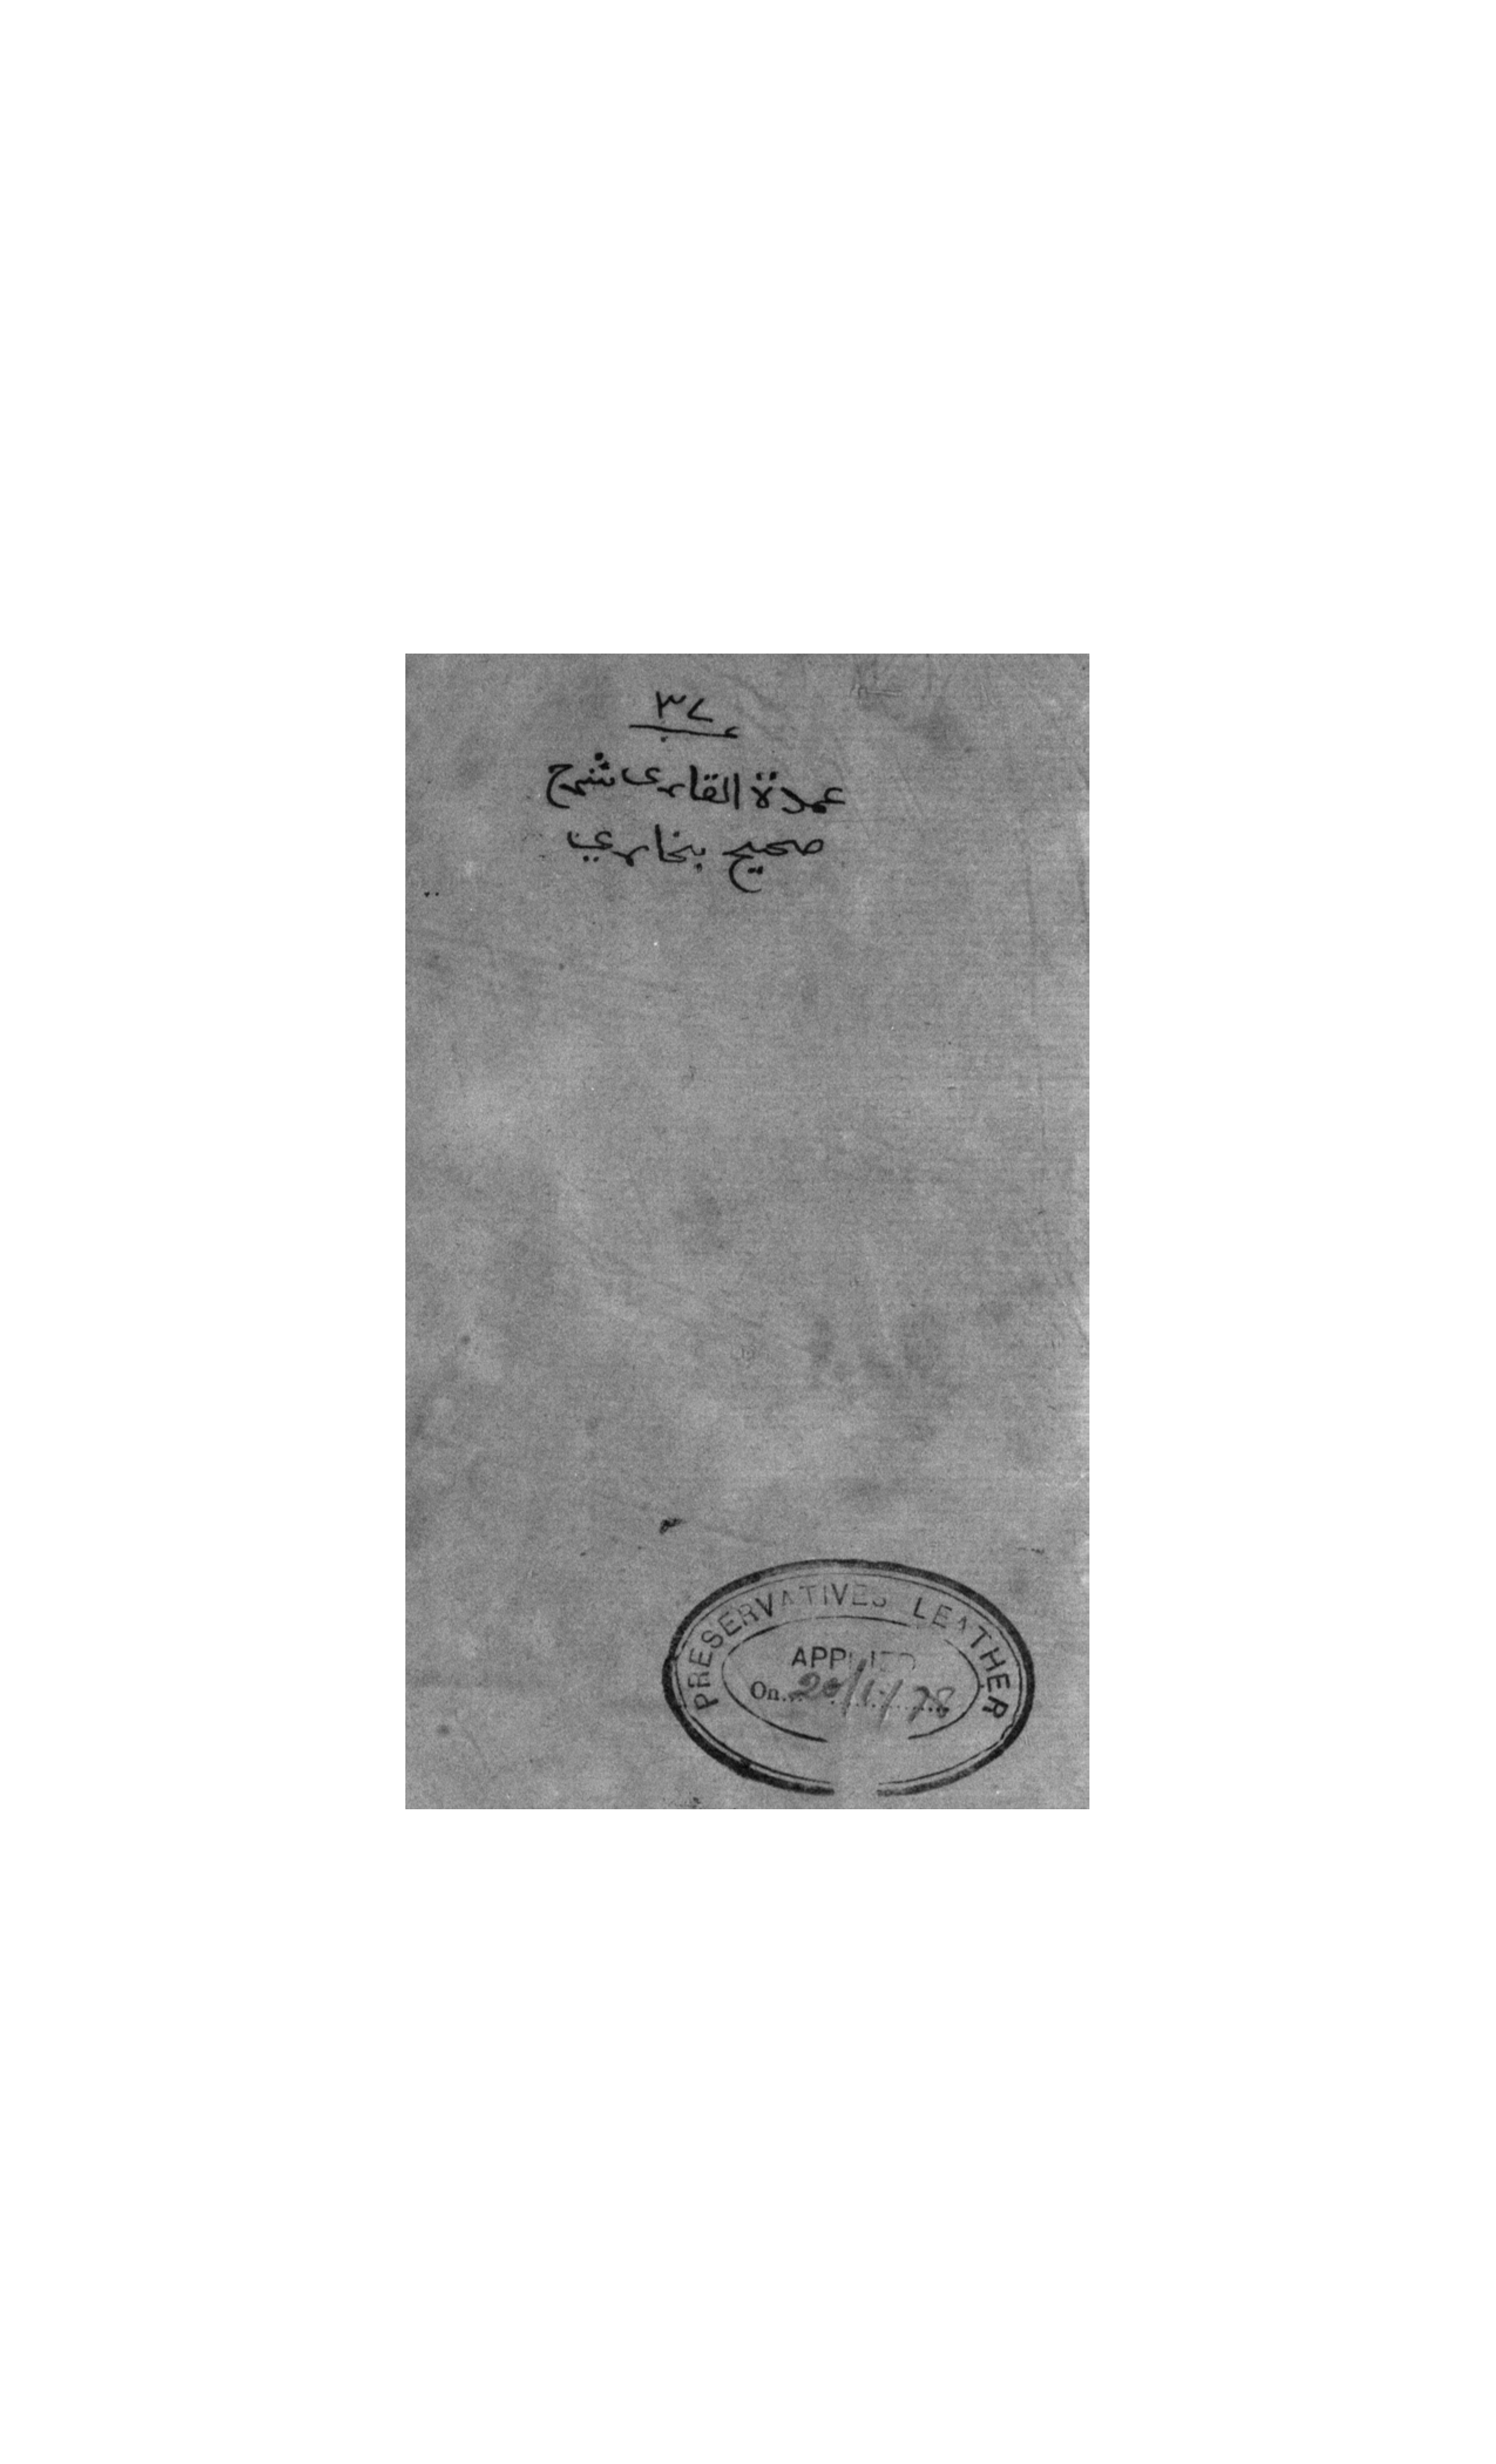 ٣٧
عمدة القارى شرح
صحيح بخاري
PRESERVATIVES LEATHER
APPLIED
On... 20/1/78